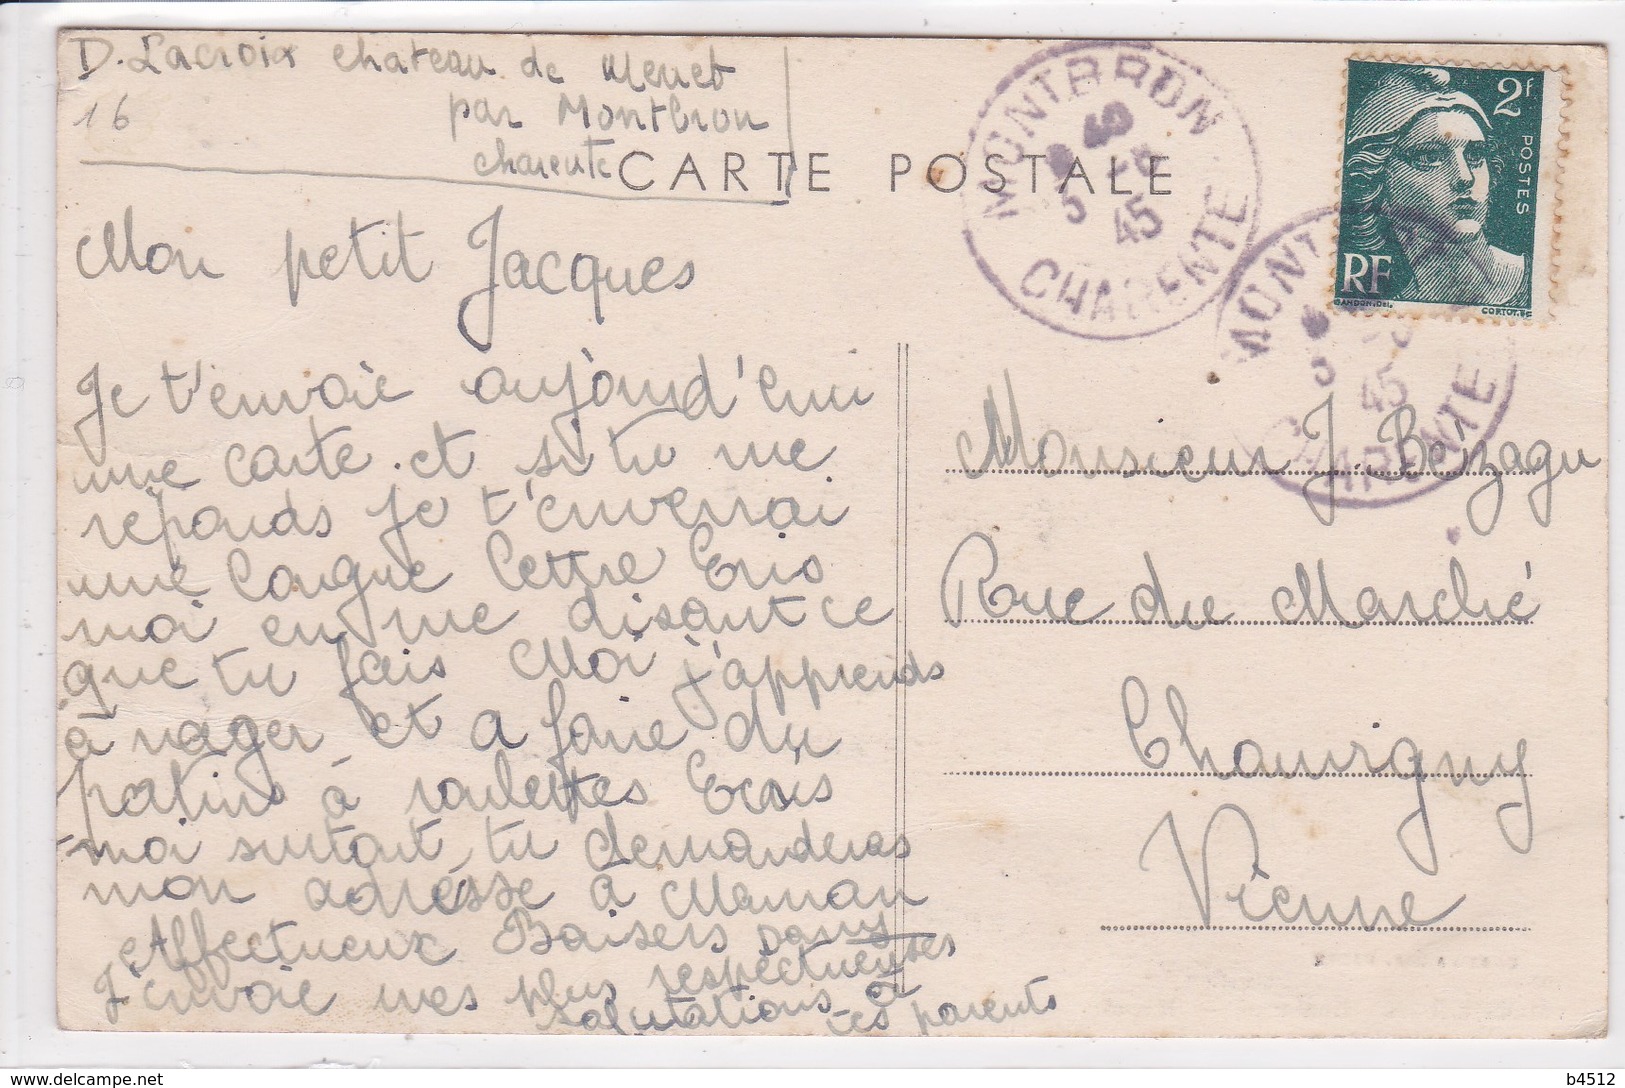 D. Lacroix chateau de Menet
par Montbron
16
charente
CARTE POSTALE
MONTBRON
5 45
CHARENTE
2f
POSTES
RF
GANDON.DEL.
CORTOT.SC
MONT
45
CHARENTE
Mon petit Jacques
Je t'envoie aujourd'hui
une carte et si tu me
reponds je t'enverrai
une longue lettre Ecris
moi en me disant ce
que tu fais Moi j'apprends
à nager et a faire du
patins à roulettes Ecris
moi surtout, tu demanderas
mon adrésse à Maman
Affectueux Baisers Dany
J'envoie mes plus respectueuses
salutations à
tes parents
Monsieur J. Berzagu
Rue du Marché
Chauvigny
Vienne
b4512